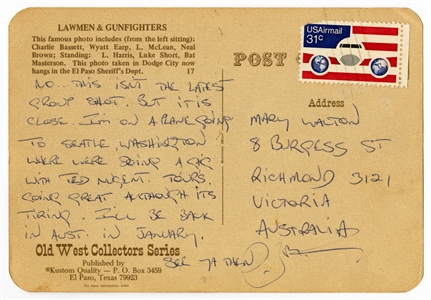 LAWMEN & GUNFIGHTERS
This famous photo includes (from the left sitting):
Charlie Bassett, Wyatt Earp, L. McLean, Neal
Brown; Standing: L. Harris, Luke Short, Bat
Masterson. This photo taken in Dodge City now
hangs in the El Paso Sheriff's Dept. 17
NO.. THIS ISNT THE LATEST
GROUP SHOT. BUT IT IS
CLOSE. I'M ON A PLANE GOING
TO SEATLE, WASHINGTON
WERE WERE DOING A GIG
WITH TED NUGENT. TOURS.
GOING GREAT. ALTHOUGH ITS
TIRING. I'LL BE BACK
IN AUST. IN JANUARY.
SEE YA THEN
Old West Collectors Series
Published by
Kustom Quality — P. O. Box 3459
El Paso, Texas 79923
POST
USAirmail
31c
Address
MARY WALTON
8 BURGESS ST
RICHMOND 3121
VICTORIA
AUSTRALIA